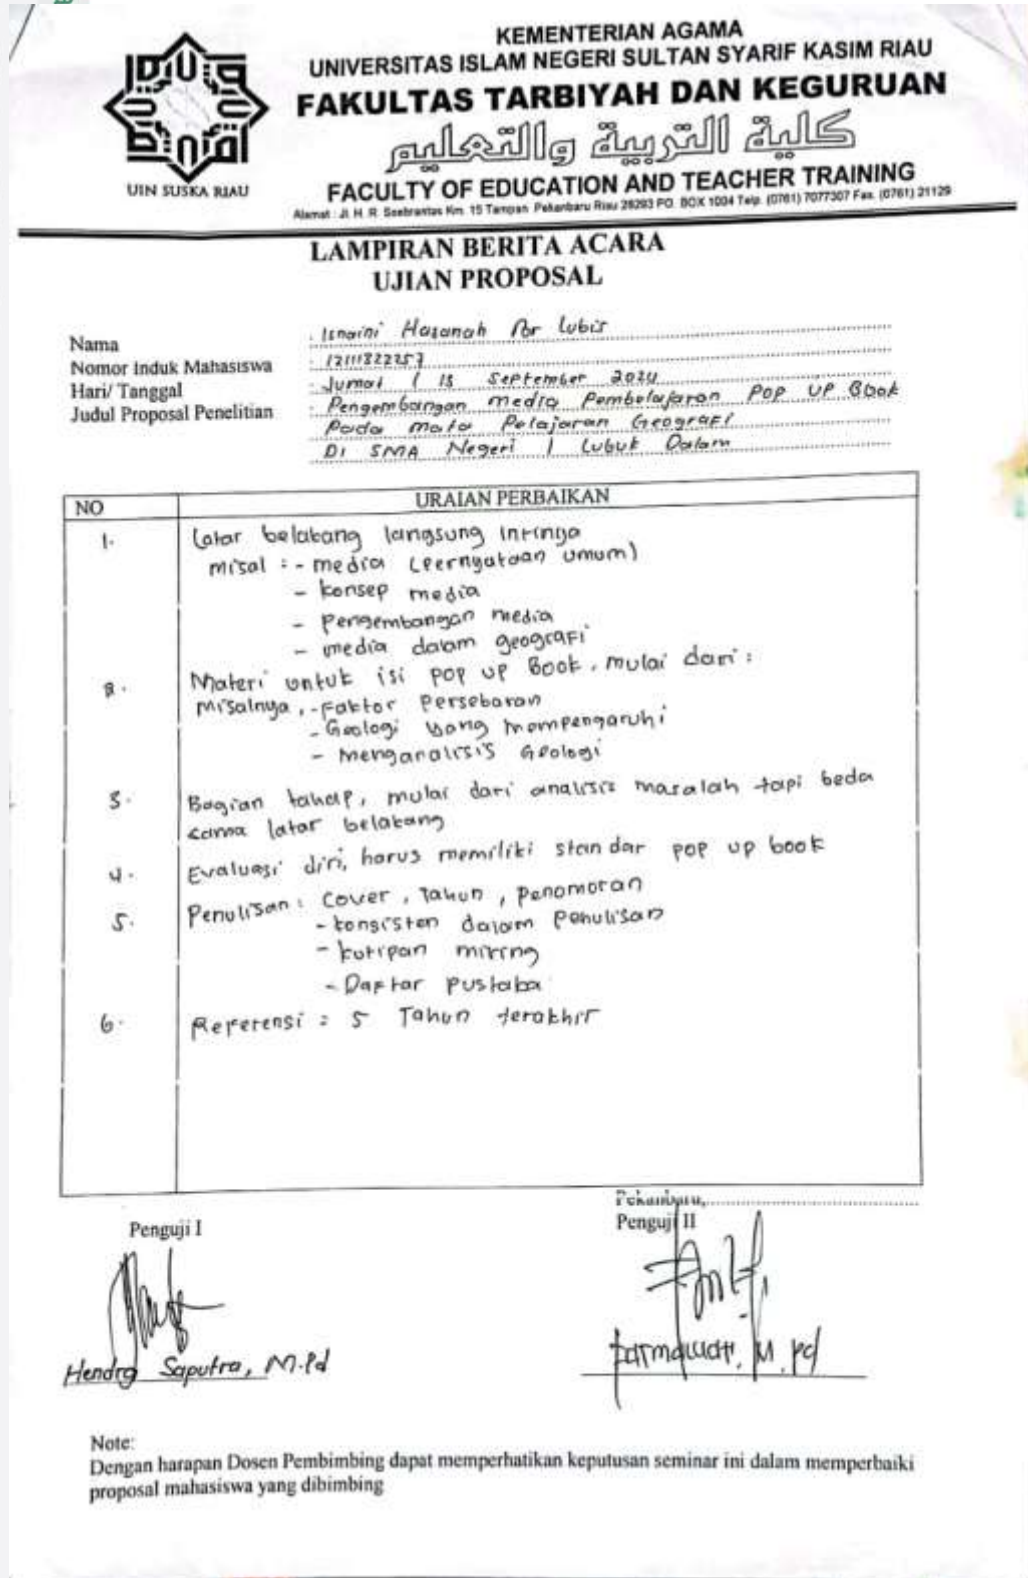 KEMENTERIAN AGAMA
UNIVERSITAS ISLAM NEGERI SULTAN SYARIF KASIM RIAU
FAKULTAS TARBIYAH DAN KEGURUAN
كلية التربية والتعليم
FACULTY OF EDUCATION AND TEACHER TRAINING
Alamat : Jl. H. R. Soebrantas Km. 15 Tampan Pekanbaru Riau 28293 PO. BOX 1004 Telp. (0761) 7077307 Fax. (0761) 21129
UIN SUSKA RIAU
LAMPIRAN BERITA ACARA
UJIAN PROPOSAL
Nama : Isnaini Hasanah Br Lubis
Nomor Induk Mahasiswa : 12111822257
Hari/ Tanggal : Jumat / 13 September 2024
Judul Proposal Penelitian : Pengembangan media Pembelajaran Pop UP Book
Pada mata Pelajaran Geografi
Di SMA Negeri 1 Lubuk Dalam
NO URAIAN PERBAIKAN
1. Latar belakang langsung intinya
misal : - media (Peernyataan umum)
- konsep media
- Pengembangan media
- media dalam geografi
2. Materi untuk isi pop up Book. mulai dari :
Misalnya, - Faktor Persebaran
- Geologi yang mempengaruhi
- Menganalisis Geologi
3. Bagian tahap, mulai dari analisis masalah tapi beda
sama latar belakang
4. Evaluasi diri, harus memiliki standar pop up book
5. Penulisan : Cover, Tahun, penomoran
- konsisten dalam penulisan
- kutipan miring
- Daftar pustaka
6. Referensi : 5 Tahun terakhir
Pekanbaru,
Penguji I Penguji II
Hendra Saputra, M.Pd Darmawati, M.Pd
Note:
Dengan harapan Dosen Pembimbing dapat memperhatikan keputusan seminar ini dalam memperbaiki
proposal mahasiswa yang dibimbing